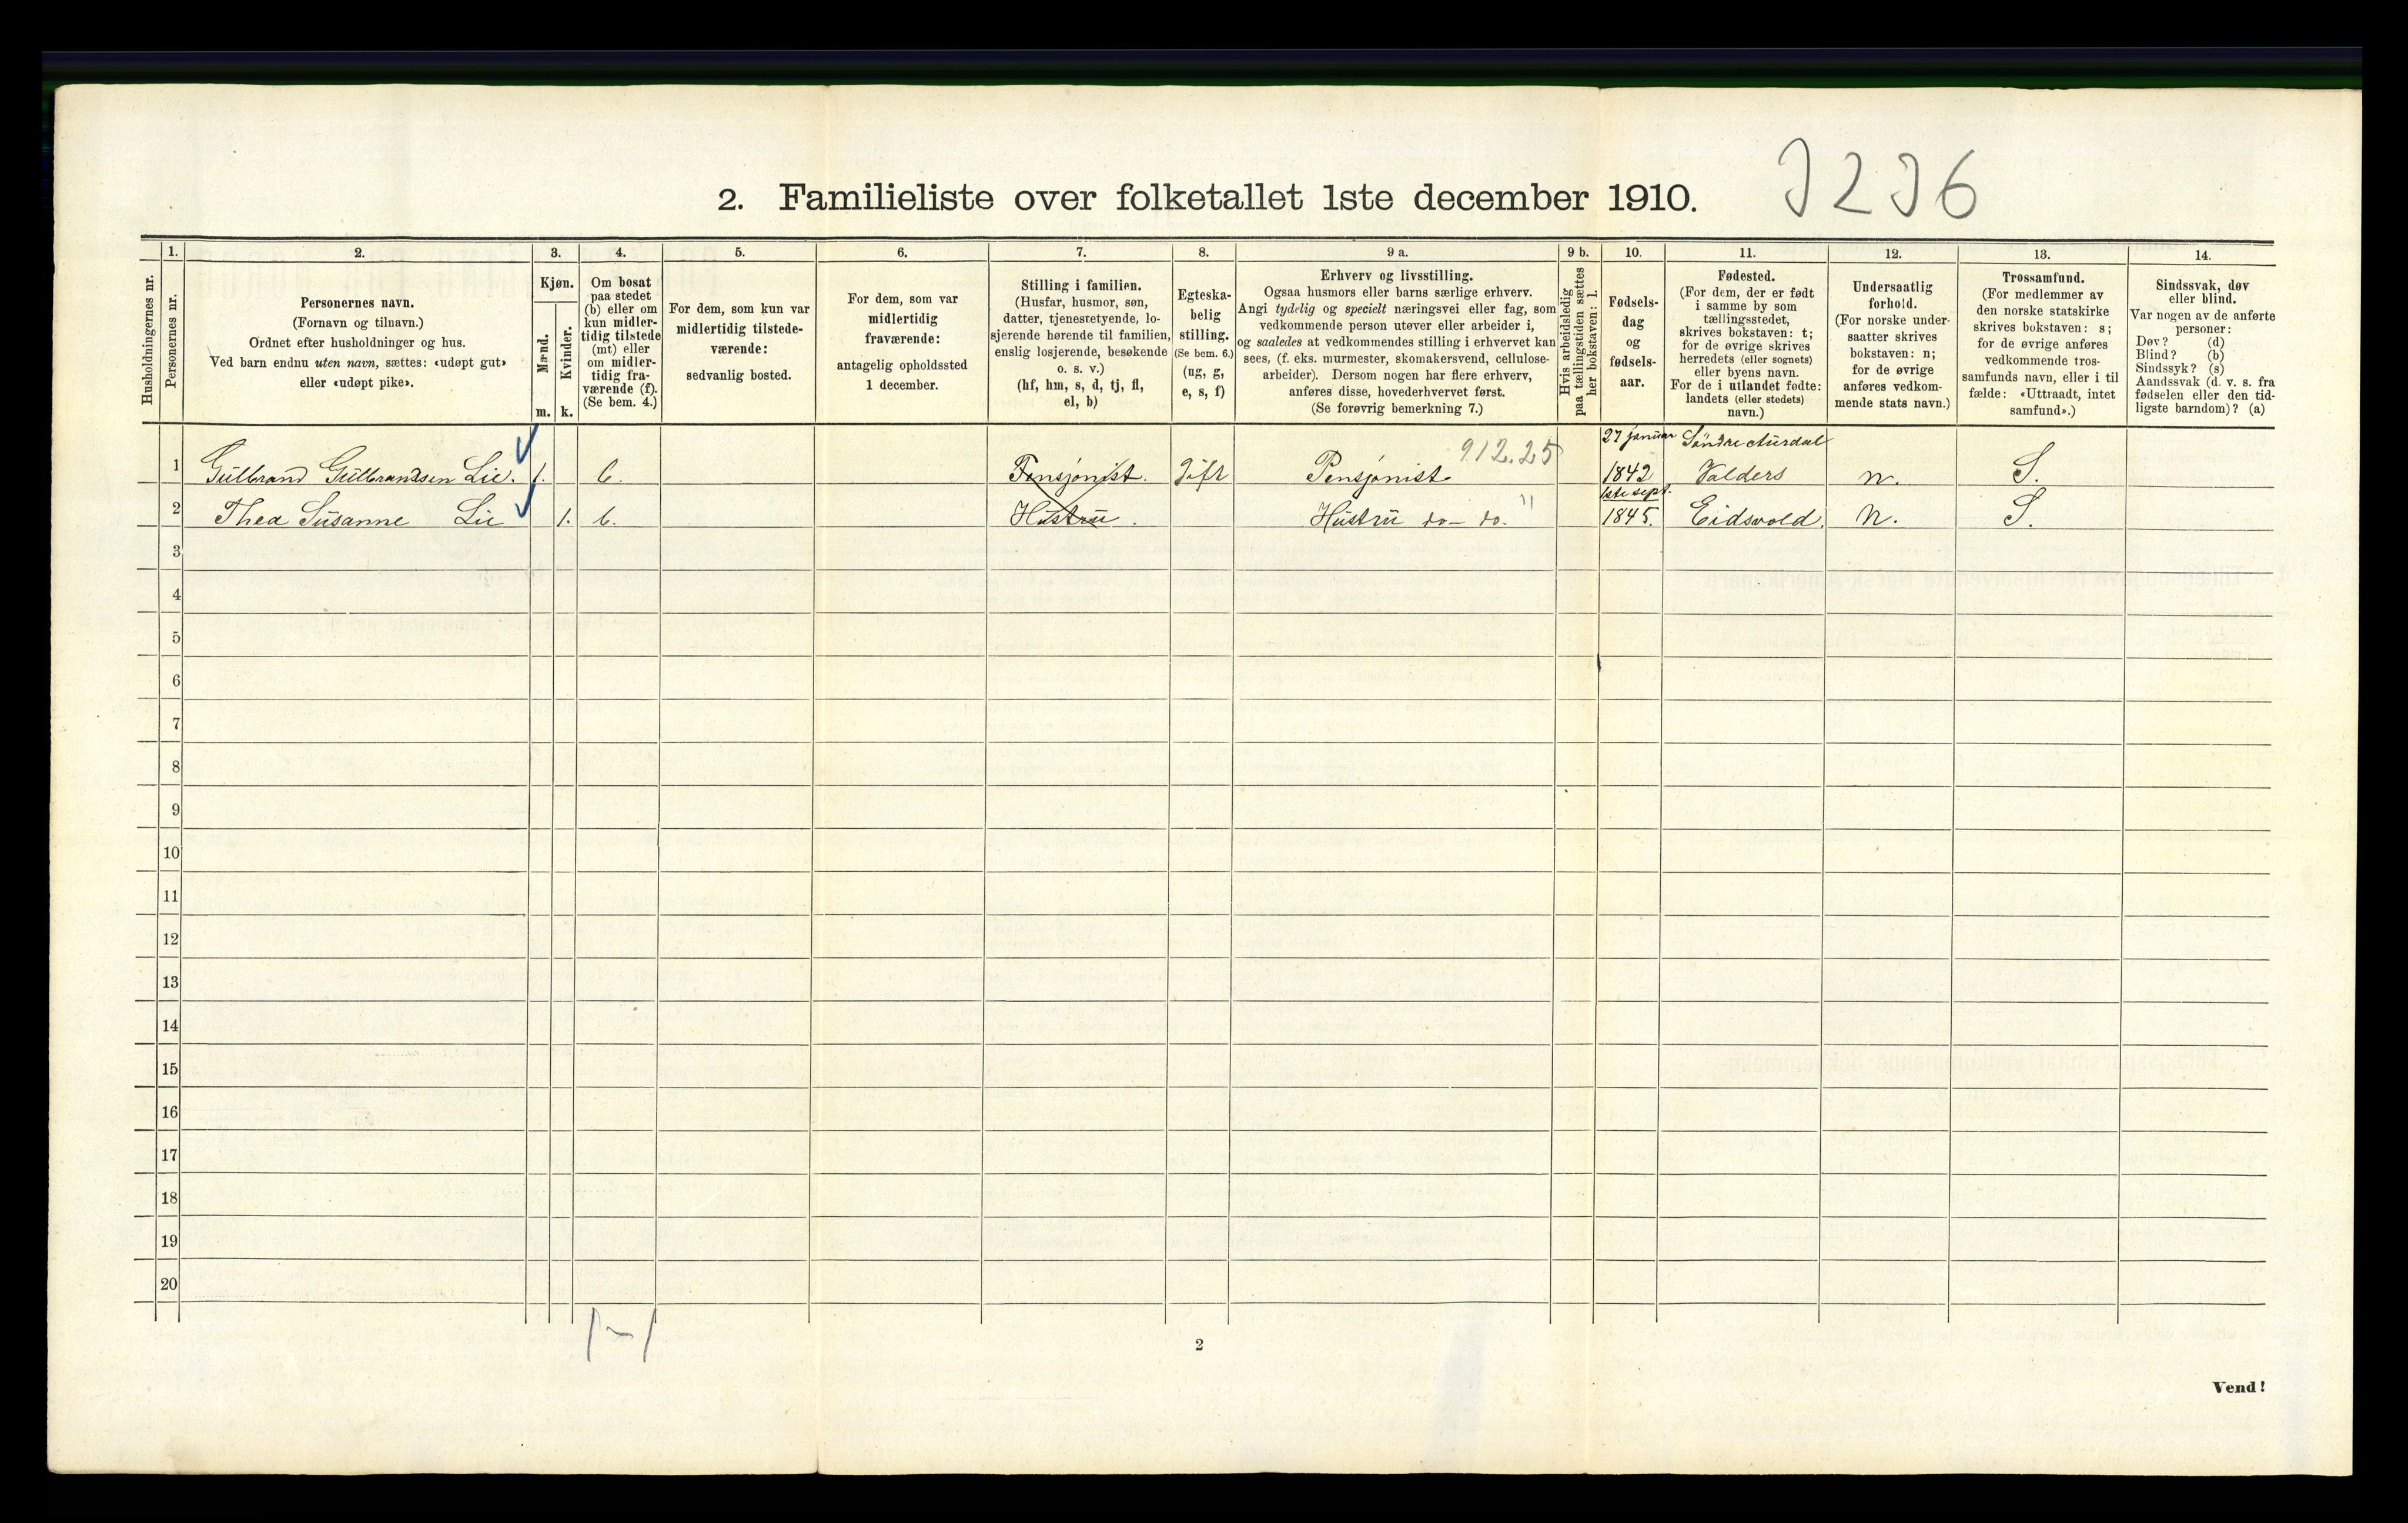 2. Familieliste over folketallet 1ste december 1910.
Husholdningernes nr.
1.
Personernes nr.
2.
Personernes navn.
(Fornavn og tilnavn.)
Ordnet efter husholdninger og hus.
Ved barn endnu uten navn, sættes: «udøpt gut»
eller «udøpt pike».
3.
Kjøn.
Mænd.
m.
Kvinder.
k.
4.
Om bosat
paa stedet
(b) eller om
kun midler-
tidig tilstede
(mt) eller
om midler-
tidig fra-
værende (f).
(Se bem. 4.)
5.
For dem, som kun var
midlertidig tilstede-
værende:
sedvanlig bosted.
6.
For dem, som var
midlertidig
fraværende:
antagelig opholdssted
1 december.
7.
Stilling i familien.
(Husfar, husmor, søn,
datter, tjenestetyende, lo-
sjerende hørende til familien,
enslig losjerende, besøkende
o. s. v.)
(hf, hm, s, d, tj, fl,
el, b)
8.
Egteska-
belig
stilling.
(Se bem. 6.)
(ug, g,
e, s, f)
9 a.
Erhverv og livsstilling.
Ogsaa husmors eller barns særlige erhverv.
Angi tydelig og specielt næringsvei eller fag, som
vedkommende person utøver eller arbeider i,
og saaledes at vedkommendes stilling i erhvervet kan
sees, (f. eks. murmester, skomakersvend, cellulose-
arbeider). Dersom nogen har flere erhverv,
anføres disse, hovederhvervet først.
(Se forøvrig bemerkning 7.)
9 b.
Hvis arbeidsledig
paa tællingstiden sættes
her bokstaven: l.
10.
Fødsels-
dag
og
fødsels-
aar.
11.
Fødested.
(For dem, der er født
i samme by som
tællingsstedet,
skrives bokstaven: t;
for de øvrige skrives
herredets (eller sognets)
eller byens navn.
For de i utlandet fødte:
landets (eller stedets)
navn.)
12.
Undersaatlig
forhold.
(For norske under-
saatter skrives
bokstaven: n;
for de øvrige
anføres vedkom-
mende stats navn.)
13.
Trossamfund.
(For medlemmer av
den norske statskirke
skrives bokstaven: s;
for de øvrige anføres
vedkommende tros-
samfunds navn, eller i til
fælde: «Uttraadt, intet
samfund».)
14.
Sindssvak, døv
eller blind.
Var nogen av de anførte
personer:
Døv? (d)
Blind? (b)
Sindssyk? (s)
Aandssvak (d. v. s. fra
fødselen eller den tid-
ligste barndom)? (a)
1 Gulbrand Gulbrandsen Lie. 1. b. Pensjonist. Gift Pensjonist 912.25 27 januar 1842 Søndre Aurdal Valders n. S.
2 Thea Susanne Lie 1. b. Hustru. Hustru do - do. " 1ste sept. 1845. Eidsvold. n. S.
3
4
5
6
7
8
9
10
11
12
13
14
15
16
17
18
19
20
1-1
2
Vend!